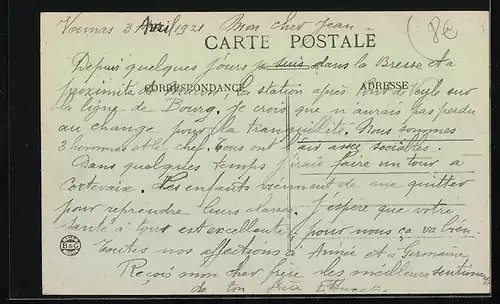 Vonnas 3 Avril 1921 Mon cher Jean
8€
CARTE POSTALE
Depuis quelques jours je suis dans la Bresse et a
proximité de la station après Pont de Veyle sur
CORRESPONDANCE ADRESSE
la ligne de Bourg. Je crois que n'aurais pas perdu
au change pour la tranquillité. Nous sommes
3 hommes et le chef. tous ont l'air assez sociables.
Dans quelques temps j'irais faire un tour a
Cortevaix. Les enfants viennent de me quitter
pour reprendre leurs classes. J'espère que votre
santé a tous est excellente, pour nous ça va bien.
Toutes nos affections à Année et à Germaine
B&G
Reçois mon cher frère des meilleurs sentiments
de ton frère